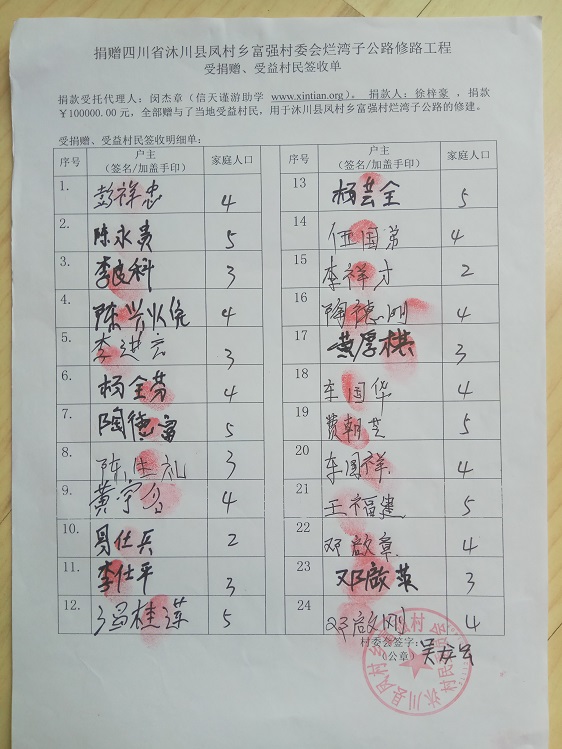 捐赠四川省沐川县凤村乡富强村委会烂湾子公路修路工程
受捐赠、受益村民签收单
捐款受托代理人：闵杰章（信天谨游助学 www.xintian.org）。 捐款人：徐梓豪，捐款
￥100000.00元，全部赠与了当地受益村民，用于沐川县凤村乡富强村烂湾子公路的修建。
受捐赠、受益村民签收明细单：
序号 户主（签名/加盖手印） 家庭人口 序号 户主（签名/加盖手印） 家庭人口
1. 彭祥忠 4 13 杨芸全 5
2. 陈永贵 5 14 伍国弟 4
3. 李良科 3 15 李祥才 2
4. 陈兴 4 16 陶德刚 4
5. 李进 3 17 黄厚棋 3
6. 杨全芬 4 18 车国华 4
7. 陶德富 5 19 费朝芝 5
8. 陈仕礼 3 20 车国祥 4
9. 黄宇 4 21 王福建 5
10. 易仕兵 2 22 邓啟章 4
11. 李仕平 3 23 邓啟英 3
12. 冯桂莲 5 24 邓啟刚 4
村委会签字：吴
（公章）
沐川县凤村乡富强村民委员会